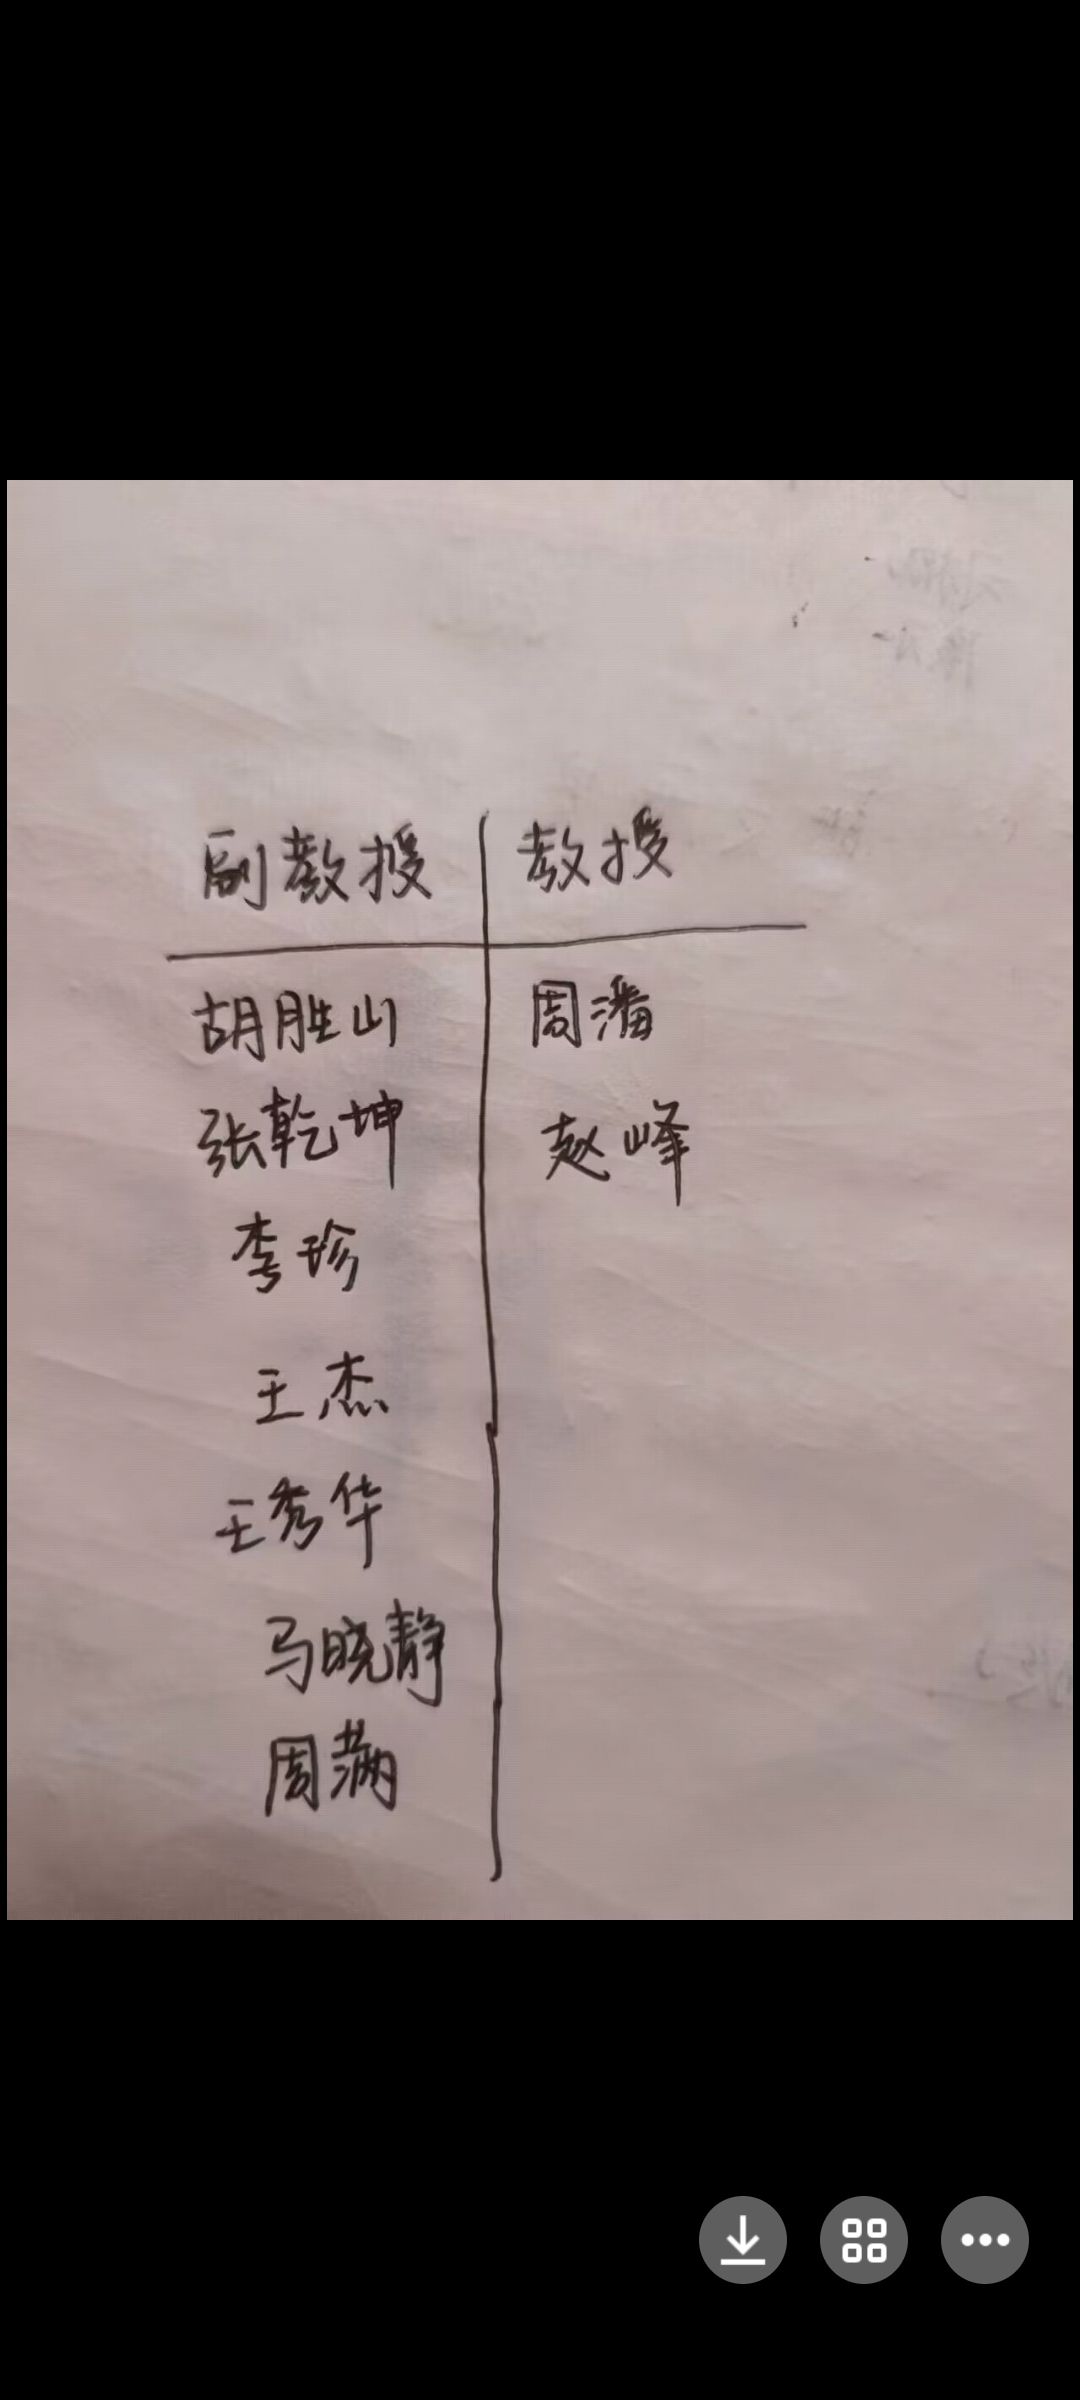 副教授 教授
胡胜山 周潘
张乾坤 赵峰
李珍
王杰
王秀华
马晓静
周满